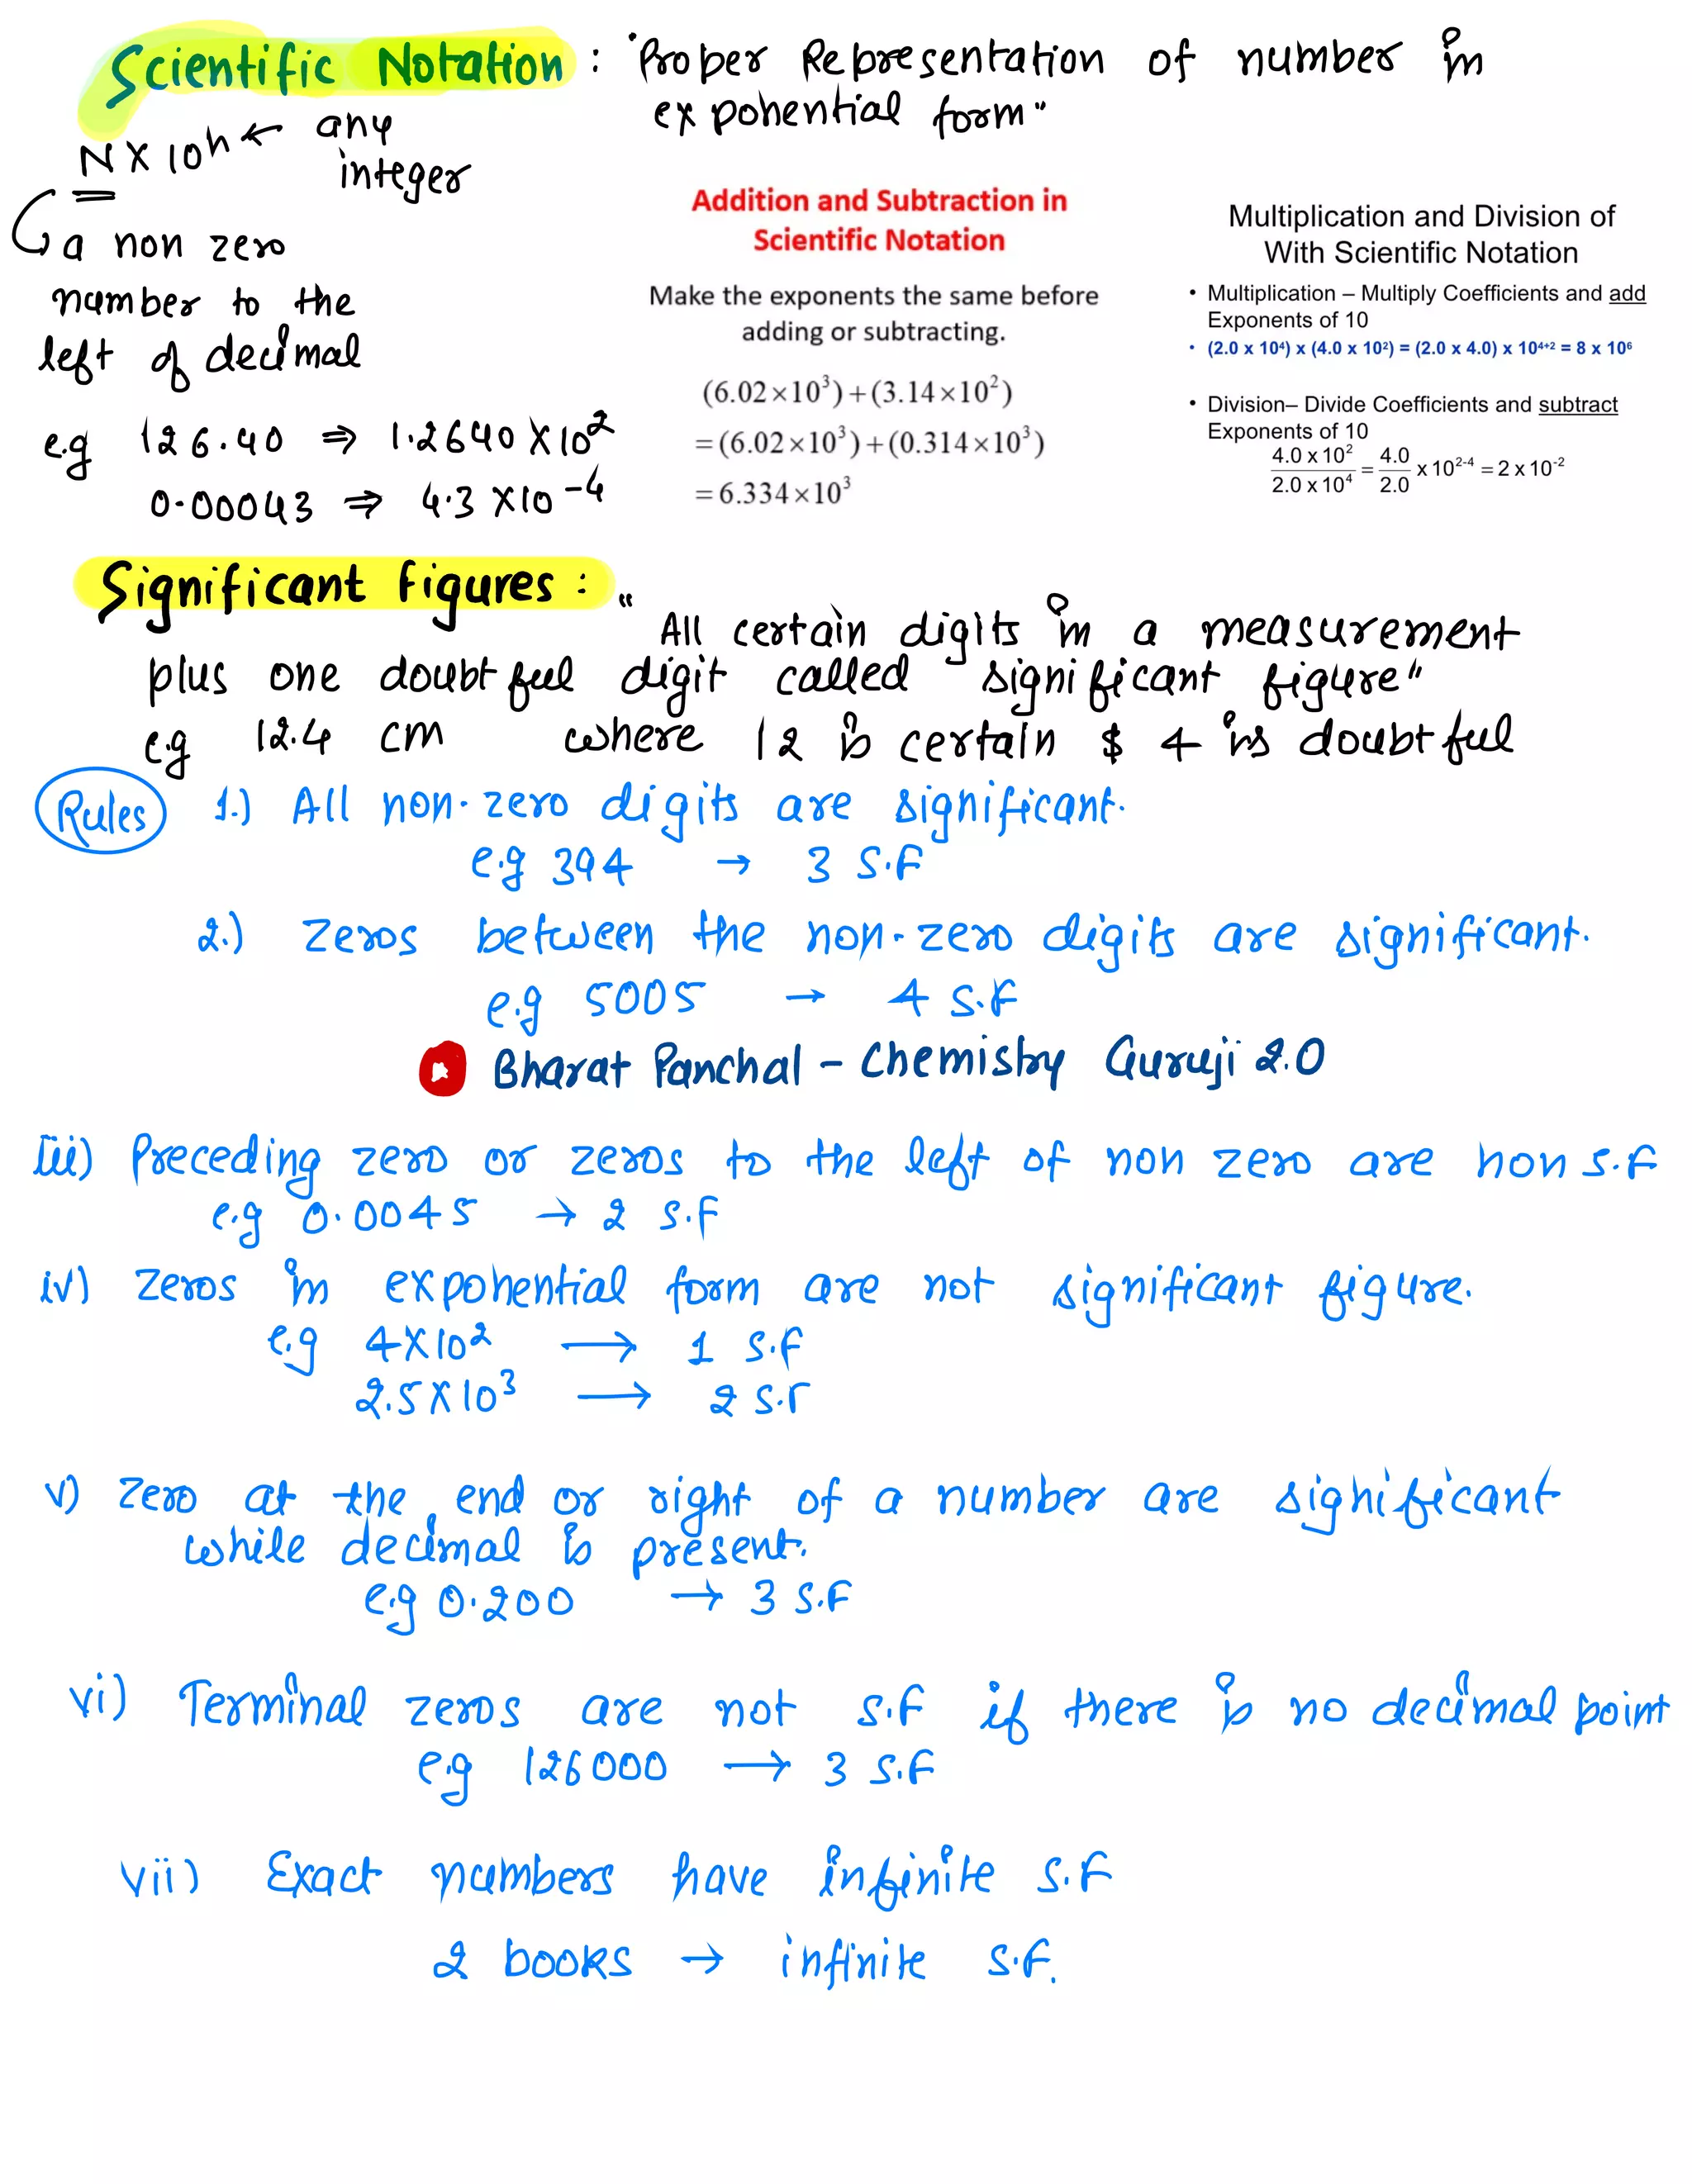 Scientific Notation : "Proper Representation of number in
exponential form"
N X 10ⁿ ← any
integer
a non zero
number to the
left of decimal
e.g 126.40 ⇒ 1.2640 X 10²
0.00043 ⇒ 4.3 X 10⁻⁴
Addition and Subtraction in
Scientific Notation
Make the exponents the same before
adding or subtracting.
(6.02×10³)+(3.14×10²)
=(6.02×10³)+(0.314×10³)
=6.334×10³
Multiplication and Division of
With Scientific Notation
• Multiplication – Multiply Coefficients and add
Exponents of 10
• (2.0 x 10⁴) x (4.0 x 10²) = (2.0 x 4.0) x 10⁴⁺² = 8 x 10⁶
• Division– Divide Coefficients and subtract
Exponents of 10
4.0 x 10² / 2.0 x 10⁴ = 4.0 / 2.0 x 10²⁻⁴ = 2 x 10⁻²
Significant Figures : "All certain digits in a measurement
plus one doubtful digit called significant figure"
e.g 12.4 cm where 12 is certain $ 4 is doubtful
Rules 1.) All non-zero digits are significant.
e.g 394 → 3 S.F
2.) Zeros between the non-zero digits are significant.
e.g 5005 → 4 S.F
Bharat Panchal - Chemistry Guruji 2.0
iii) Preceding zero or zeros to the left of non zero are non S.F
e.g 0.0045 → 2 S.F
iv) Zeros in exponential form are not significant figure.
e.g 4X10² → 1 S.F
2.5X10³ → 2 S.F
v) Zero at the end or right of a number are significant
while decimal is present.
e.g 0.200 → 3 S.F
vi) Terminal zeros are not S.F if there is no decimal point
e.g 126000 → 3 S.F
vii) Exact numbers have infinite S.F
2 books → infinite S.F.